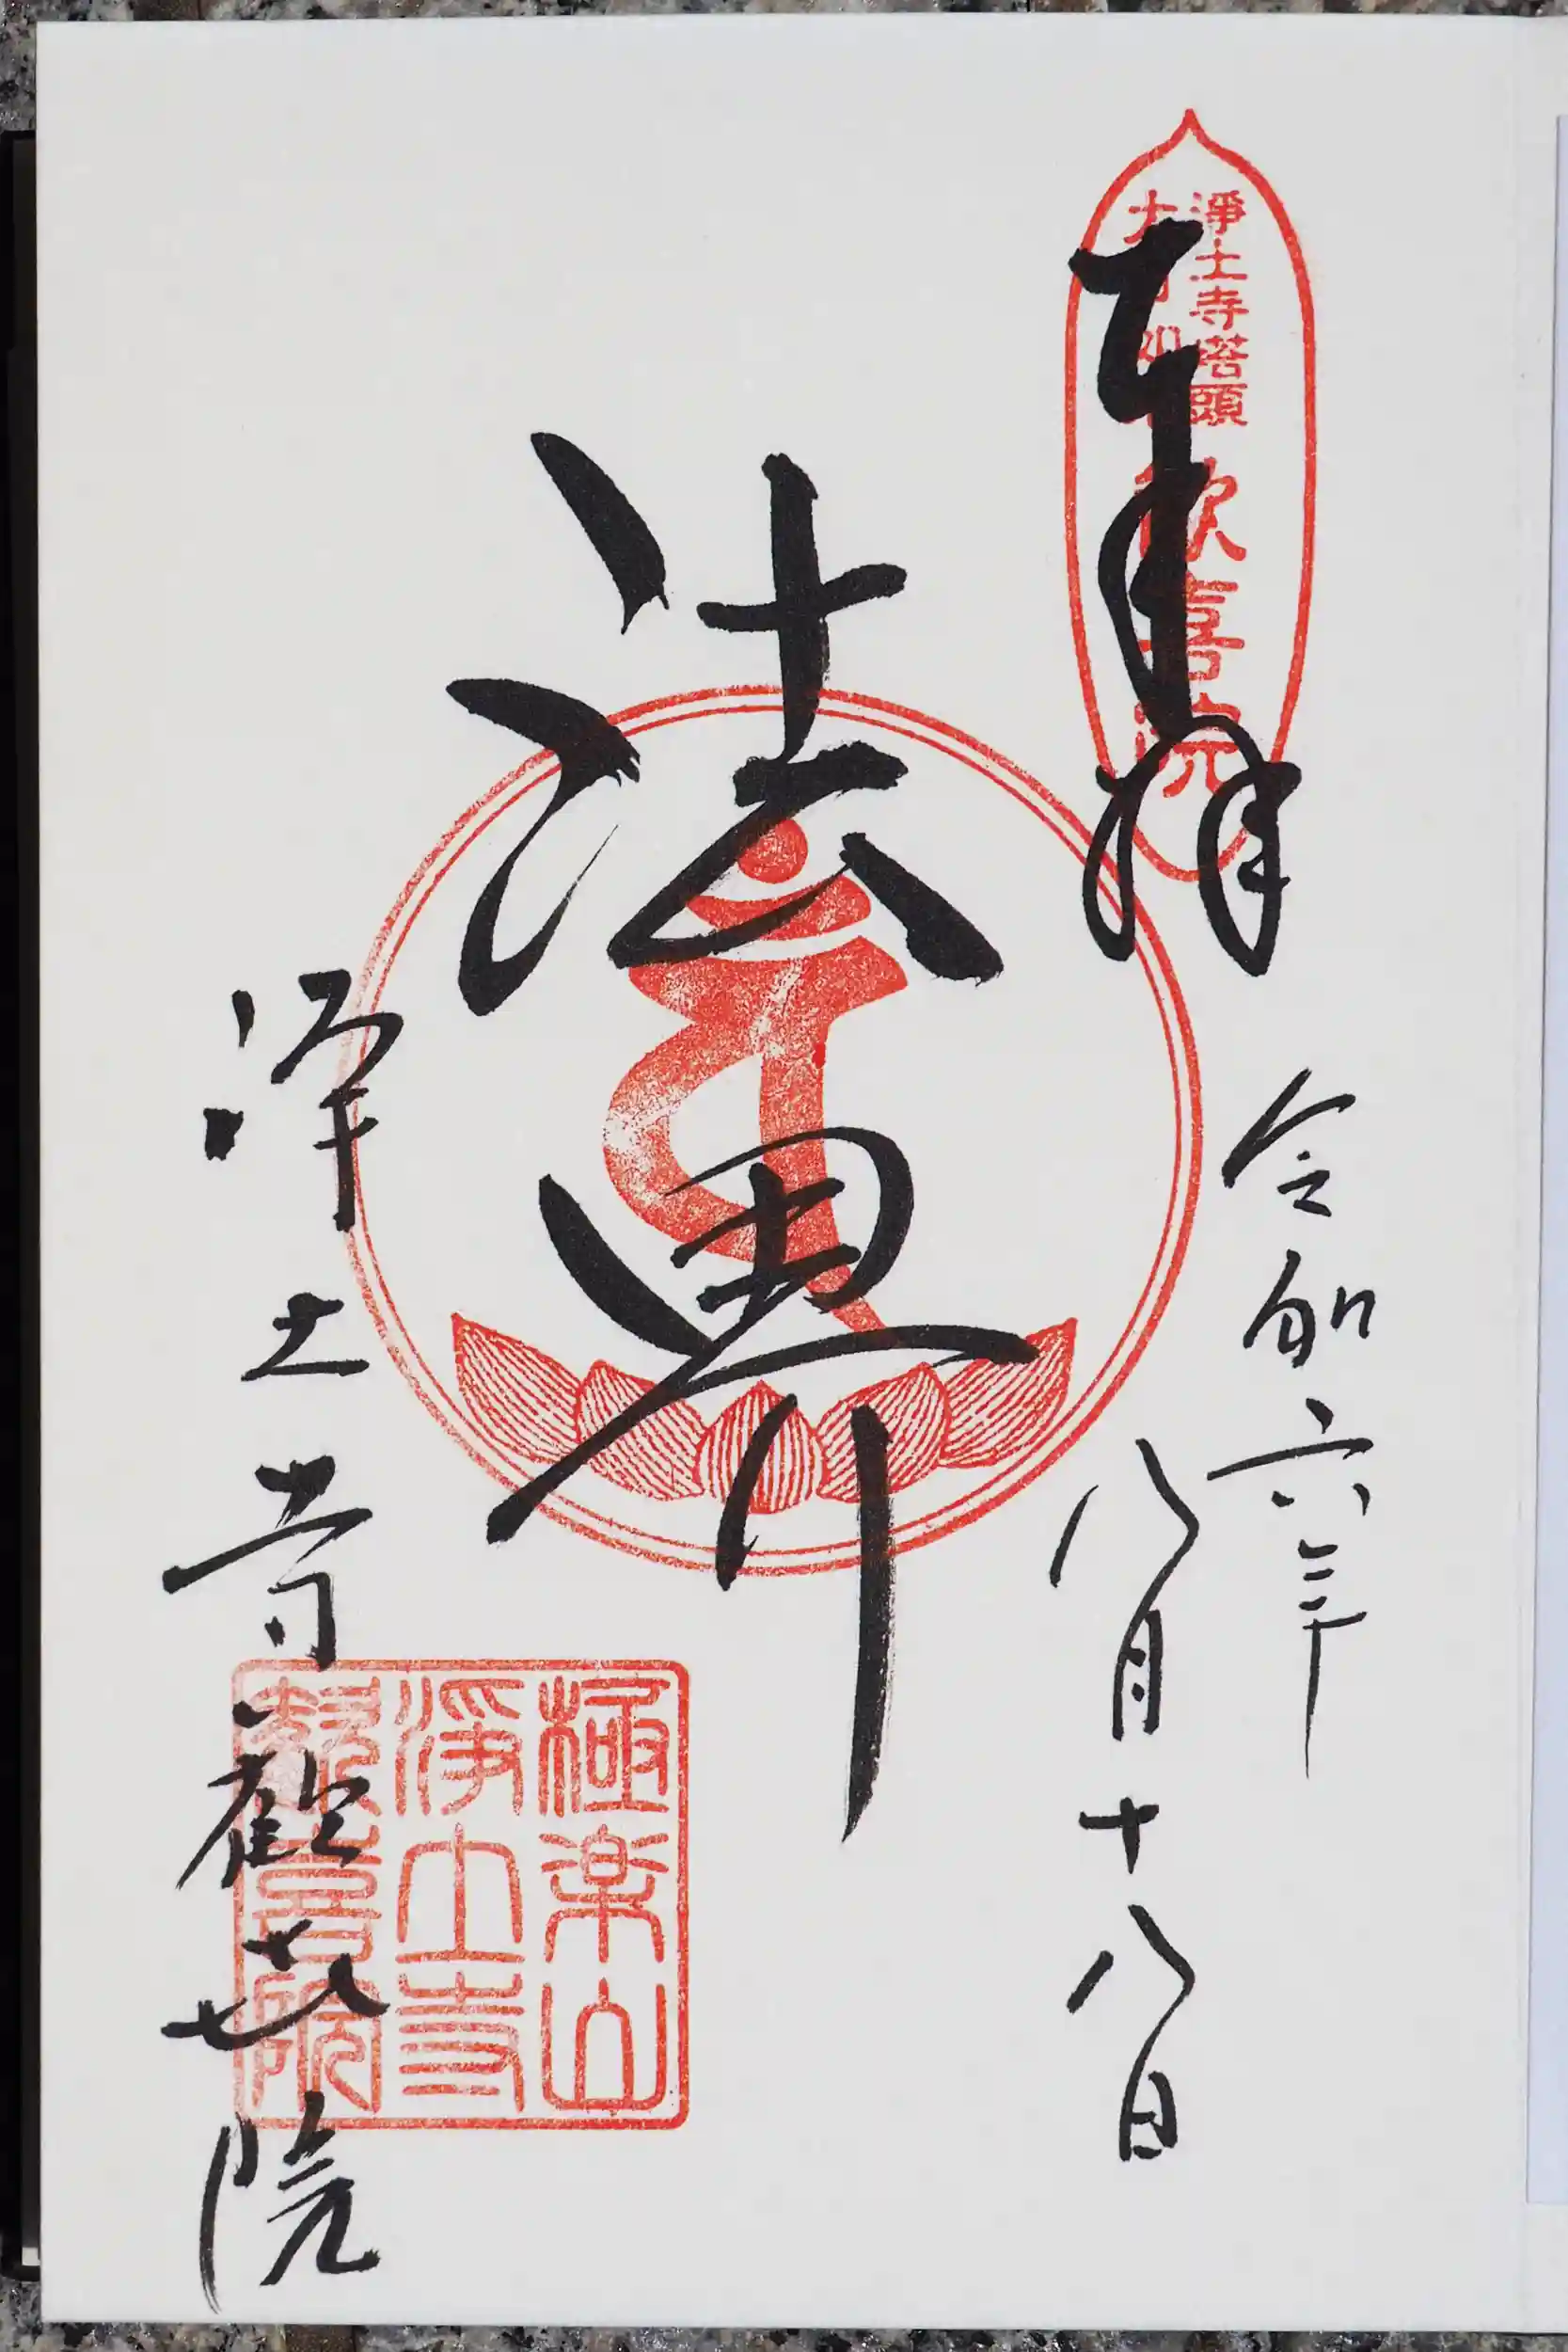 奉拝
淨土寺塔頭
歓喜院
令和六年
八月十八日
法界
浄土寺歓㐂院
極楽山
淨土寺
歓喜院